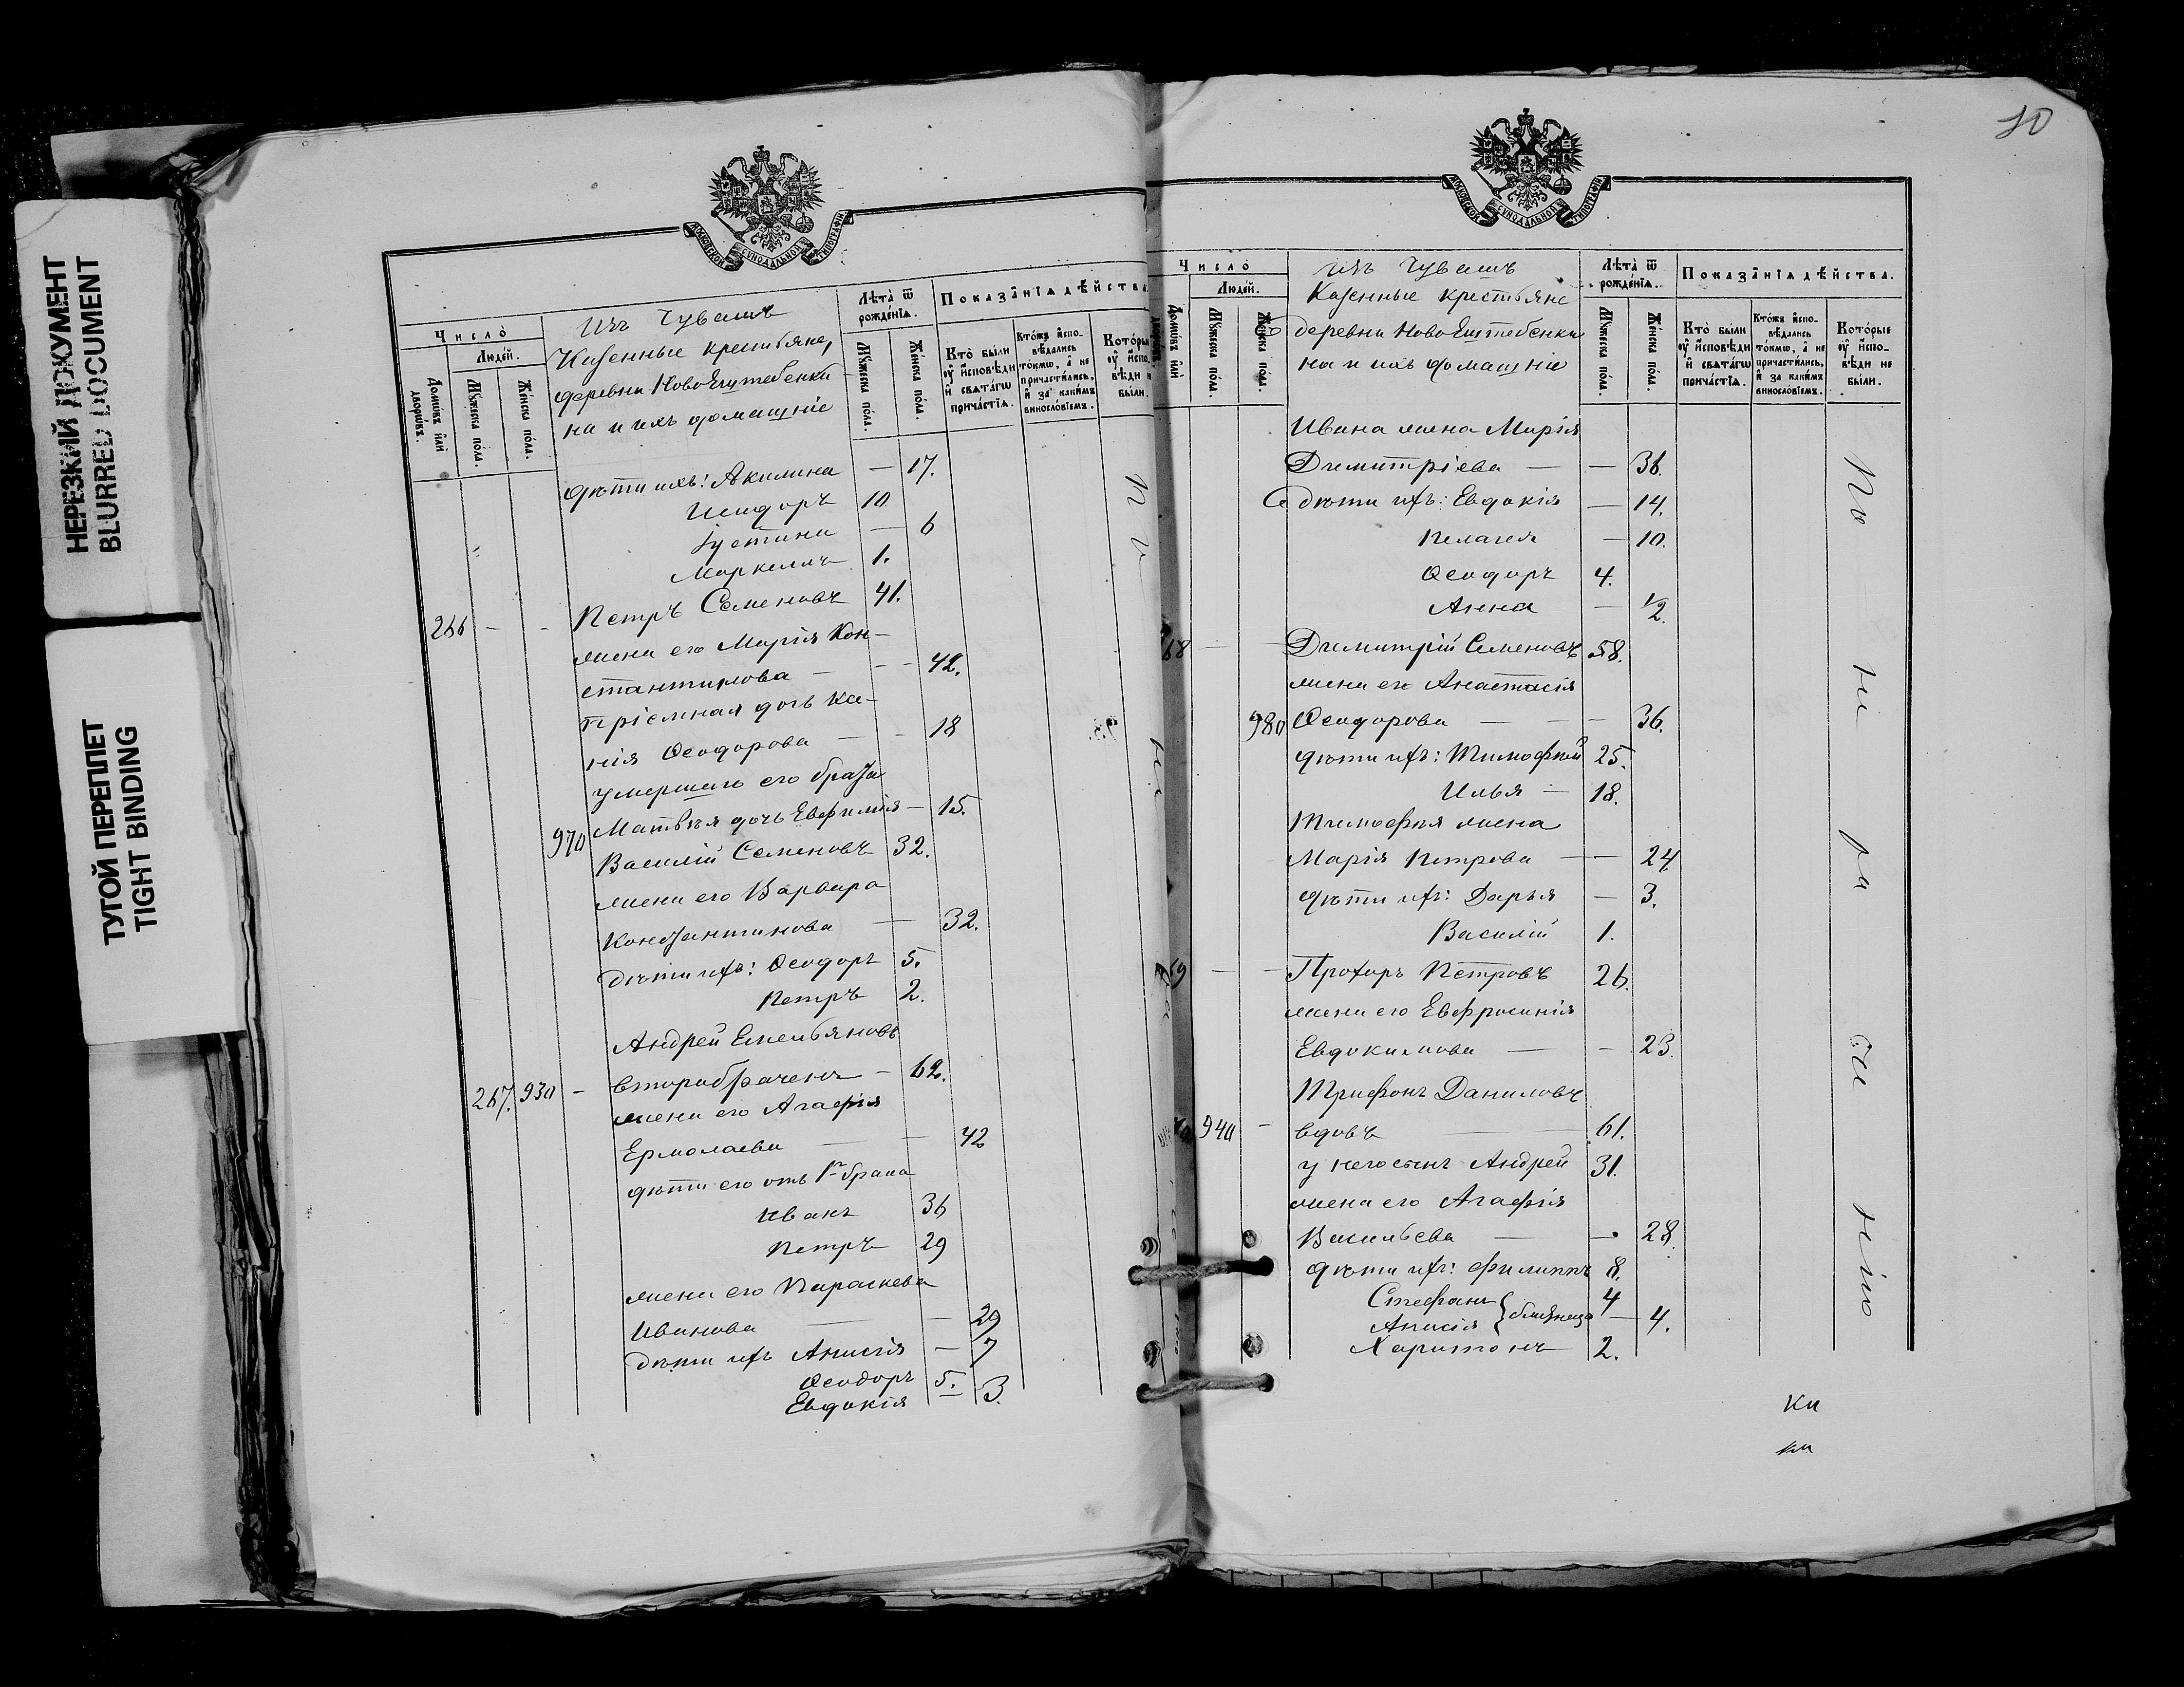 НЕРЕЗКИЙ ДОКУМЕНТ
BLURRED DOCUMENT
ТУГОЙ ПЕРЕПЛЕТ
TIGHT BINDING
МОСКОВСКОЙ СѴНОДАЛЬНОЙ ТИПОГРАФІИ
Число̀
Люде́й.
Домѡ́въ и҆лѝ дворѡ́въ.
Мꙋ́жеска по́ла.
Же́нска по́ла.
Изъ Чувашъ
Казенные крестьяне,
деревни Ново Ештебенки-
на и ихъ домашніе
Лѣта̀ ѿ рожде́нїѧ.
Мꙋ́жеска по́ла.
Же́нска по́ла.
Показа̑нїѧ дѣ́йства
Кто̀ бы́ли оу҆ и҆́сповѣди и҆ свѧта́гѡ прича́стїѧ.
Кто́жъ и҆спо-вѣ́дались то́кмѡ, а҆ не причасти́лись, и҆ за каки́мъ винословїемъ.
Кото́ры оу҆ и҆спо-вѣди н бы́ли.
дѣти ихъ: Акилина — 17.
Исидоръ 10
Іустина — 6
Маркеллъ 1.
266 - - Петръ Семеновъ 41.
жена его Марія Кон-
стантинова — 42.
пріемная дочь Ка-
нія Ѳеодорова — 18
умершаго его брата
970 Матвѣя дочь Евфимія — 15.
Василій Семеновъ 32.
жена его Варвара
Константинова — 32.
дѣти ихъ: Ѳеодоръ 5.
Петръ 2.
Андрей Емельяновъ
267. 930 - второбраченъ - 62.
жена его Агафія
Ермолаева — 42
дѣти его отъ 1го брака
Иванъ 36
Петръ 29
жена его Параскева
Иванова — 29
дѣти ихъ Анисія — 7
Ѳеодоръ 5.
Евдокія — 3.
10
МОСКОВСКОЙ СѴНОДАЛЬНОЙ ТИПОГРАФІИ
Число̀
Люде́й.
Домѡ́въ и҆лѝ
Мꙋ́жеска по́ла.
Же́нска по́ла.
Изъ Чувашъ
Казенные крестьяне
деревни Ново Ештебенки
на и ихъ домашніе
Лѣта̀ ѿ рожде́нїѧ.
Мꙋ́жеска по́ла.
Же́нска по́ла.
Показа̑нїѧ дѣ́йства.
Кто̀ бы́ли оу҆ и҆́сповѣди и҆ свѧта́гѡ прича́стїѧ.
Кто́жъ и҆спо-вѣ́дались то́кмѡ, а҆ не причасти́лись, и҆ за каки́мъ винословїемъ.
Кото́рые оу҆ и҆спо-вѣди не бы́ли.
Ивана жена Марія
Димитріева — — 36.
дѣти ихъ: Евдокія — 14.
Пелагея — 10.
Ѳеодоръ 4.
Анна — 1/2.
68 — Димитрій Семеновъ 58.
жена его Анастасія
980 Ѳеодорова — — — 36.
дѣти ихъ: Тимофей 25.
Илья — 18.
Тимофея жена
Марія Петрова — — 24
дѣти ихъ: Дарья — 3.
Василій 1.
69 — - Прохоръ Петровъ 26.
жена его Евфросинія
Евдокимова — - 23.
Трифонъ Даниловъ
940 - вдовъ — 61.
у него сынъ Андрей 31.
жена его Агафія
Васильева — — 28.
дѣти ихъ: Филиппъ 8.
Стефанъ 4
Анисія } близнецы — 4.
Харитонъ 2.